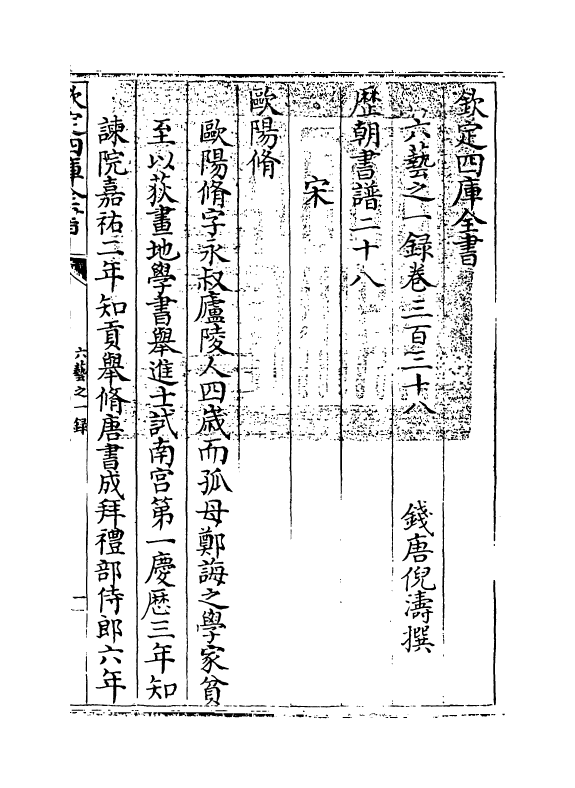 欽定四庫全書
六藝之一録卷三百三十八
錢唐倪濤撰
歷朝書譜二十八
宋
歐陽脩
歐陽脩字永叔廬陵人四歲而孤母鄭誨之學家貧
至以荻畫地學書舉進士試南宮第一慶歷三年知
諫院嘉祐二年知貢舉脩唐書成拜禮部侍郎六年
欽定四庫全書
六藝之一録
一